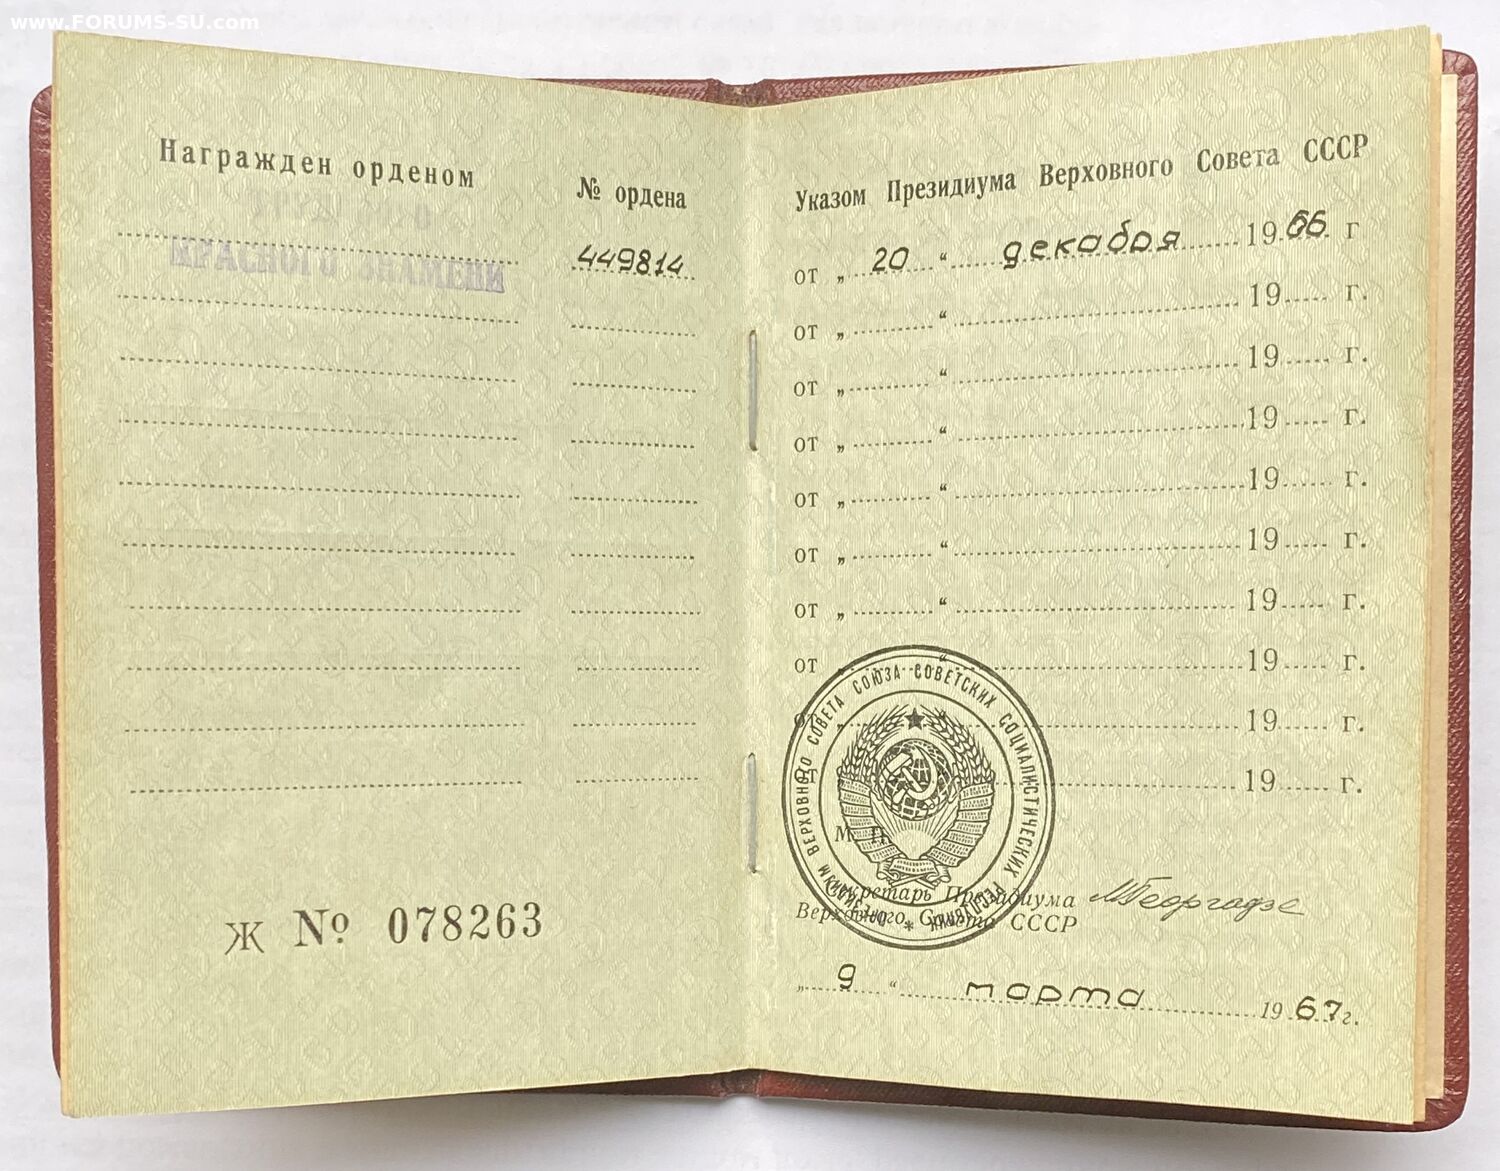 www.FORUMS-SU.com
Награжден орденом
№ ордена
КРАСНОГО ЗНАМЕНИ
449814
Ж № 078263
Указом Президиума Верховного Совета СССР
от „ 20 “ декабря 1966 г
от „ “ 19 г.
от „ “ 19 г.
от „ “ 19 г.
от „ “ 19 г.
от „ “ 19 г.
от „ “ 19 г.
от „ “ 19 г.
от „ “ 19 г.
от 19 г.
М. П.
ПРЕЗИДИУМ ВЕРХОВНОГО СОВЕТА СОЮЗА СОВЕТСКИХ СОЦИАЛИСТИЧЕСКИХ РЕСПУБЛИК *
Секретарь Президиума МГеоргадзе
Верховного Совета СССР
„ 9 “ марта 1967 г.